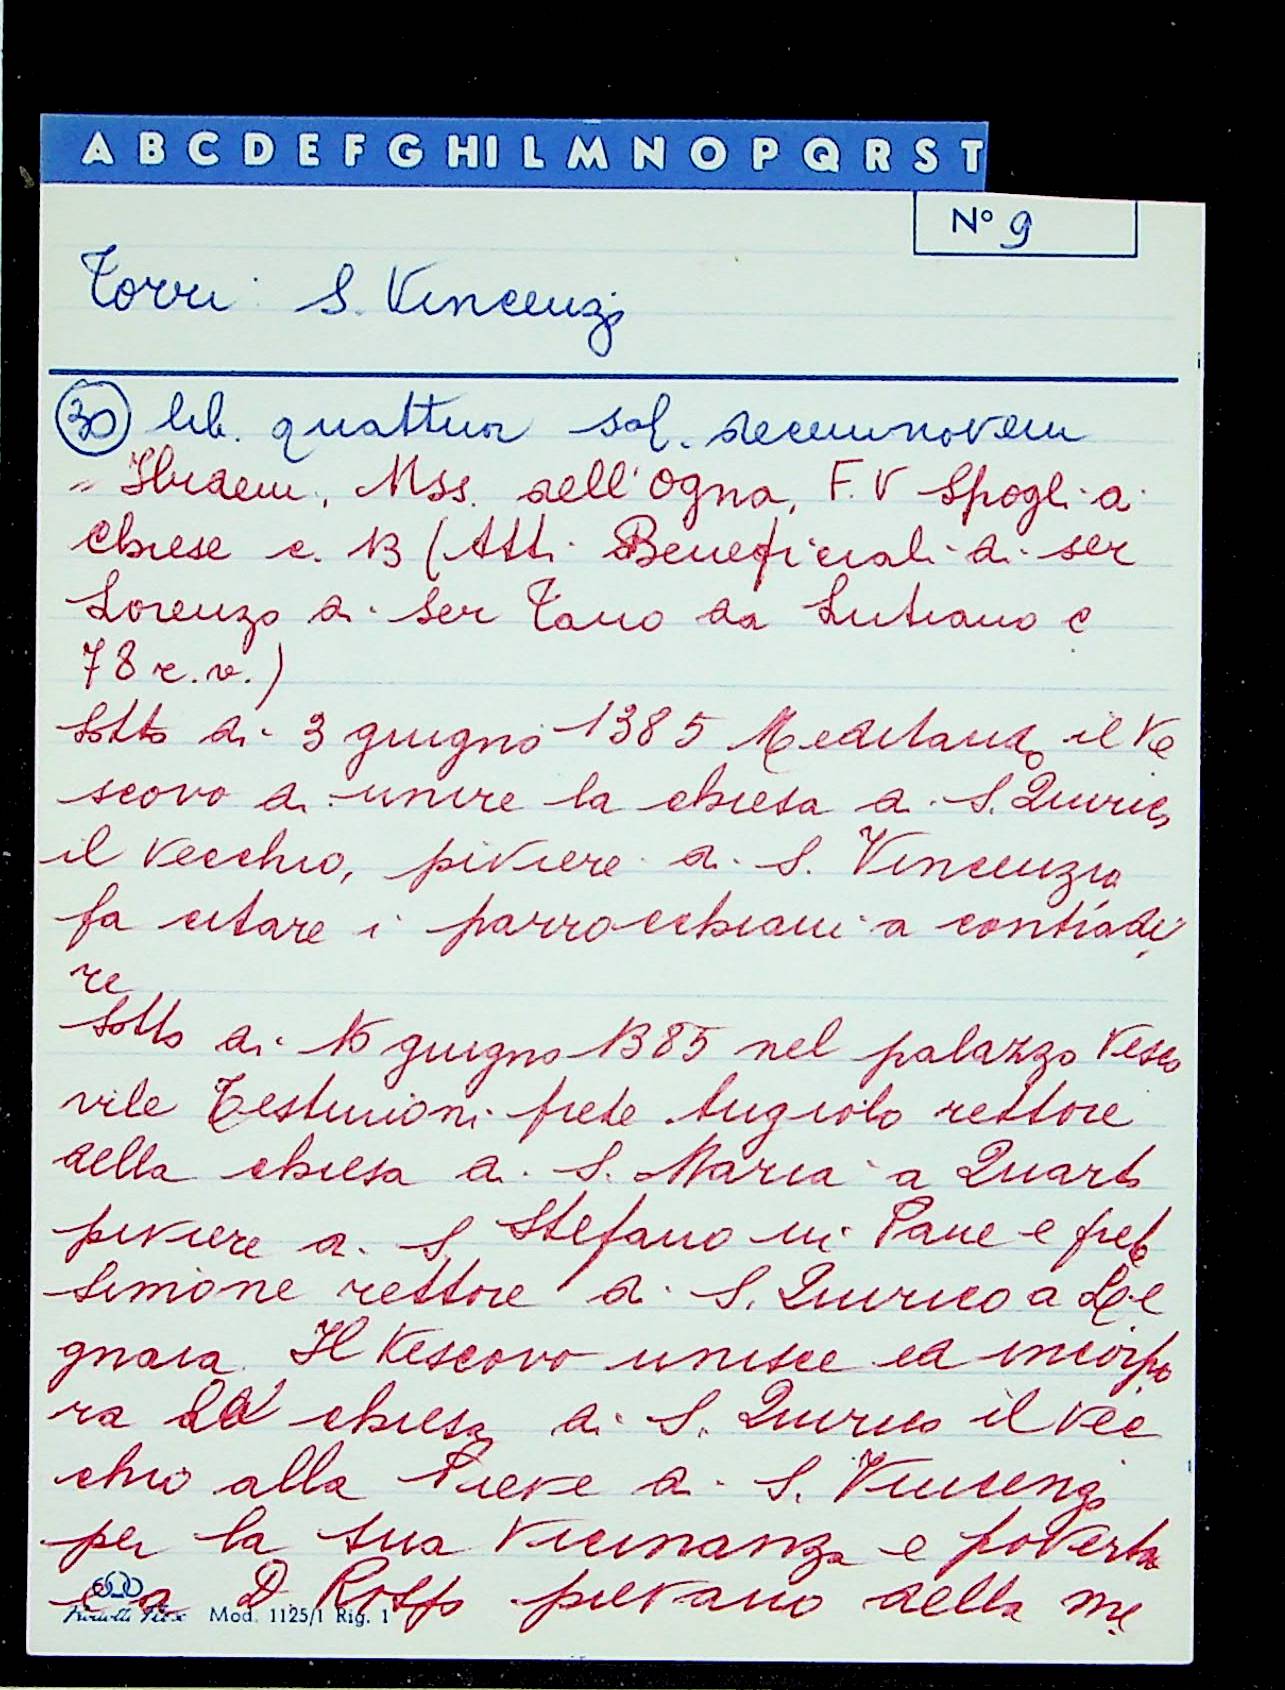 A B C D E F G HI L M N O P Q R S T
N° 9
Torri S. Vincenzo
30 lib. quattuor sol. decemnovem
" Ibidem, Mss. dell'Ogna, F. V Spogli di
chiese c. 13 (Atti Beneficiali di ser
Lorenzo di ser Tano da Lutiano c
78 r. v.)
Sotto dì 3 giugno 1385 Meditando il Ve
scovo di unire la chiesa di S. Quirico
il vecchio, piviere di S. Vincenzio
fa citare i parrocchiani a contradi
re
Sotto dì 15 giugno 1385 nel palazzo Vesco
vile Testimoni prete Angiolo rettore
della chiesa di S. Maria a Quarto
piviere di S. Stefano in Pane e prete
Simone rettore di S. Quirico a Le
gnaia. Il Vescovo unisce ed incorpo
ra la chiesa di S. Quirico il vec
chio alla Pieve di S. Vincenzo
per la sua vicinanza e povertà
D. pievano della me
Mod. 1125/1 Rig. 1